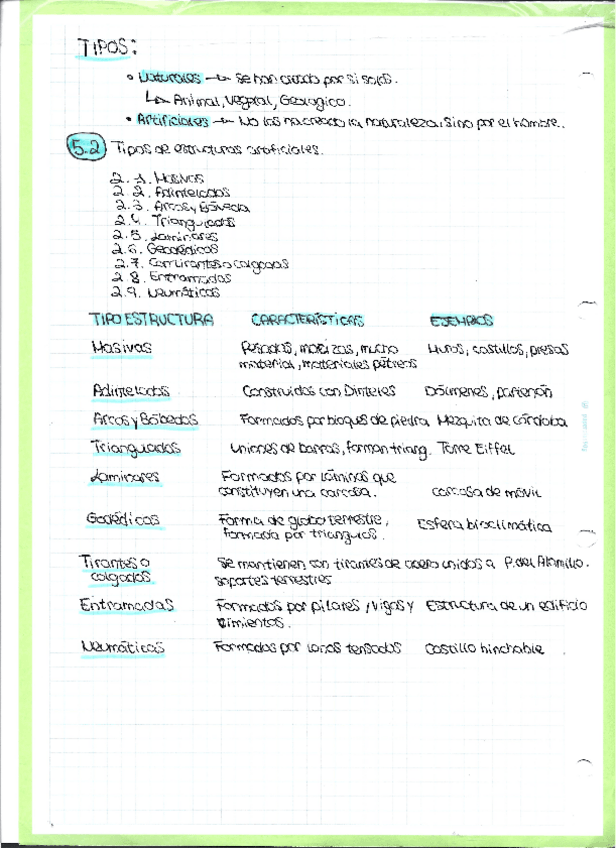 TIPOS:
• Naturales → Se han creado por si solas.
↳ Animal, Vegetal, Geologico.
• Artificiales → No las ha creado la naturaleza. Sino por el hombre.
5.2 Tipos de estructuras artificiales.
2.1. Masivas
2.2. Adinteladas
2.3. Arcos y Bóveda
2.4. Trianguladas
2.5. Laminares
2.6. Geodédicas
2.7. Con tirantes o colgadas
2.8. Entramadas
2.9. Neumáticas
TIPO ESTRUCTURA CARACTERÍSTICAS EJEMPLOS
Masivas Pesadas, macizas, mucho Muros, castillos, presas
material, materiales pétreos
Adinteladas Construidas con Dinteles Dólmenes, partenón
Arcos y Bóbedas Formadas por bloques de piedra Mezquita de córdoba
Trianguadas Uniones de barras, forman triang. Torre Eiffel
Laminares Formadas por láminas que
constituyen una carcasa. carcasa de móvil
Geodédicas Forma de globo terrestre, Esfera bioclimática
formada por triangulos.
Tirantes o Se mantienen con tirantes de acero unidos a P. del Alamillo.
colgadas soportes terrestres
Entramadas Formadas por pilares, vigas y Estructura de un edificio
cimientos.
Neumáticas Formadas por lonas tensadas Castillo hinchable